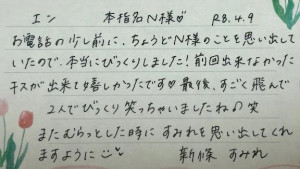 エン 本指名N様♡ R8.4.9
お電話の少し前に、ちょうどN様のことを思い出して
いたので、本当にびっくりしました！前回出来なかった
キスが出来て嬉しかったです♡最後、すごく飛んで
2人でびっくり笑っちゃいましたね 笑
またむらっとした時に すみれを思い出してくれ
ますように 新條 すみれ